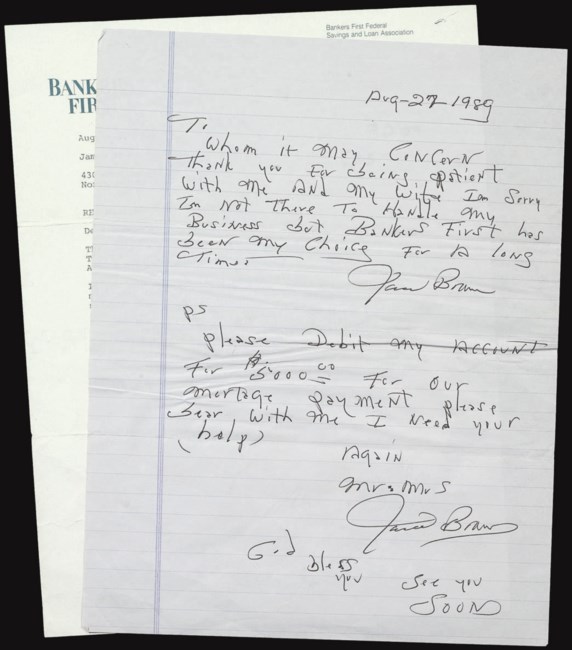 Bankers First Federal
Savings and Loan Association
BANK
FIR
Aug
Jam
430
Aug-27-1989
To
Whom it May CONCERN
Thank you For being patient
With Me AND My Wife Im Sorry
Im Not There To Handle My
Business but Bankers First has
been My Choice For A long
Time.
James Brown
ps
please Debit My ACCOUNT
For $5000.00 For our
mortage payMENT please
bear With Me I Need your
(help)
Again
Mr & Mrs
James Brown
God
bless
you
See you
SOON